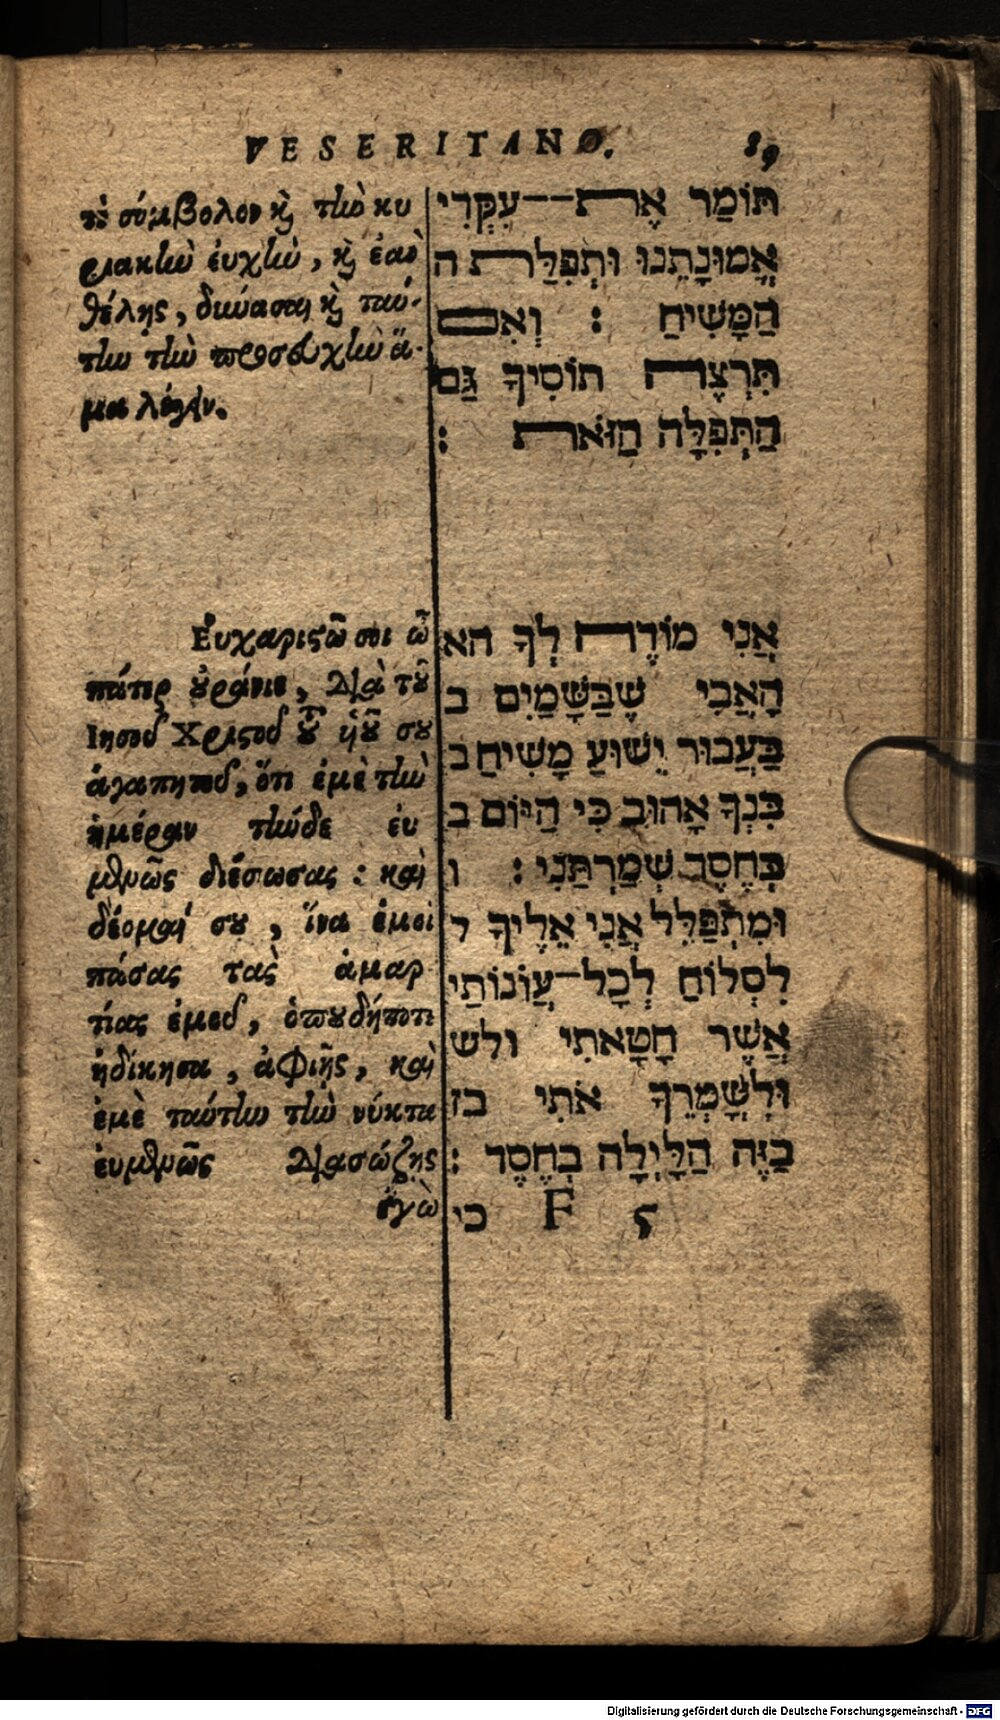 VESERITANO. 89
τὸ σύμβολον ϗ τὴν κυ
ριακὴν ἐυχὴν, ϗ ἐαν
θέλῃς, δύνασαι ϗ ταύ-
την τὴν προσευχὴν ἅ-
μα λέγειν.
Εὐχαριςῶ σοι ὦ
πάτερ οὐράνιε, διὰ τοῦ
Ιησοῦ Χριςοῦ τοῦ ἡοῦ σου
ἀγαπητοῦ, ὅτι ἐμὲ τὴν
ἡμέραν τήνδε ἐυ
μενῶς διέσωσας : καὶ
δέομαί σου, ἵνα ἐμοὶ
πάσας τας ἁμαρ
τίας ἐμοῦ, ὁπουδήποτε
ἠδίκησα, ἀφιῇς, καὶ
ἐμὲ ταύτην τὴν νύκτα
ἐυμενῶς διασώζῃς
ἐγὼ
תּוֹמַר אֶת--עִקְּרִי
אֱמוּנָתֵנוּ וּתְפִלַּת ה
הַמָּשִׁיחַ : וְאִם
תִּרְצֶה תוֹסִיף גַּם
הַתְּפִלָּה הַזֹּאת :
אֲנִי מוֹדֶה לְךָ הא
הָאֲבִי שֶׁבַּשָּׁמַיִם ב
בַּעֲבוּר יֵשׁוּעַ מָשִׁיחַ ב
בִּנְךָ אָהוּב כִּי הַיּוֹם ב
בְּחֶסֶד שְׁמַרְתַּנִי : ו
וּמִתְפַּלֵּל אֲנִי אֵלֶיךָ ל
לִסְלוֹחַ לְכָל-עֲוֹנוֹתַי
אֲשֶׁר חָטָאתִי ולש
וּלְשָׁמְרֵךָ אֹתִי בז
בַזֶּה הַלַּיְלָה בְּחֶסֶד :
כי F 5